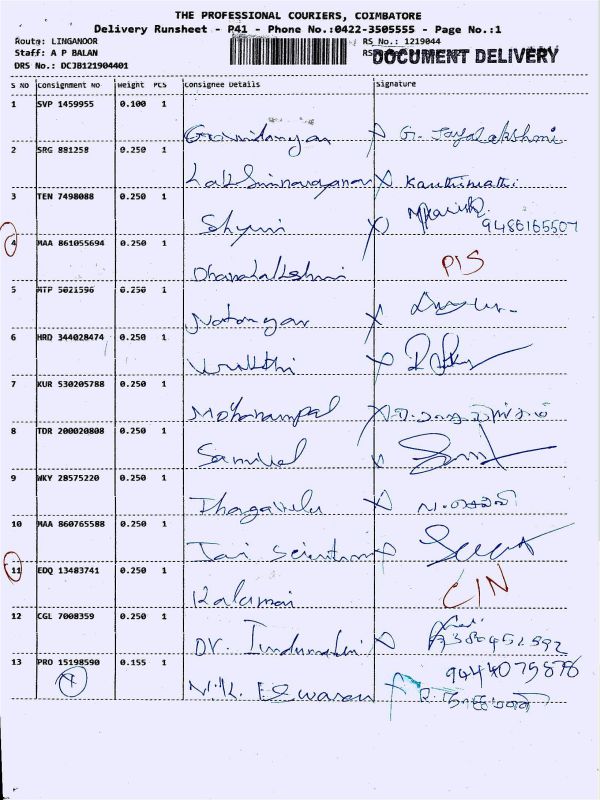 THE PROFESSIONAL COURIERS, COIMBATORE
Delivery Runsheet - P41 - Phone No.:0422-3505555 - Page No.:1
Route: LINGANOOR RS No.: 1219044
Staff: A P BALAN RS DOCUMENT DELIVERY
DRS No.: DCJB121904401
S NO Consignment NO Weight PCS Consignee Details Signature
1 SVP 1459955 0.100 1
G. Jayalakshmi
2 SRG 881258 0.250 1
Lakshminarayanan X Kanthimathi
3 TEN 7498088 0.250 1
Shyni X 9486165507
4 MAA 861055694 0.250 1
Dhanalakshmi P/S
5 MTP 5021596 0.250 1
Natarayan X
6 HRD 344028474 0.250 1
X
7 KUR 530205788 0.250 1
Mohanampal X
8 TDR 200020808 0.250 1
Samuel
9 WKY 28575220 0.250 1
Thagavelu X
10 MAA 860765588 0.250 1
Jai X
11 EDQ 13483741 0.250 1
Kalamani C/N
12 CGL 7008359 0.250 1
DR. Indumathi X
13 PRO 15198590 0.155 1 9444079878
N.K. Eswaran X